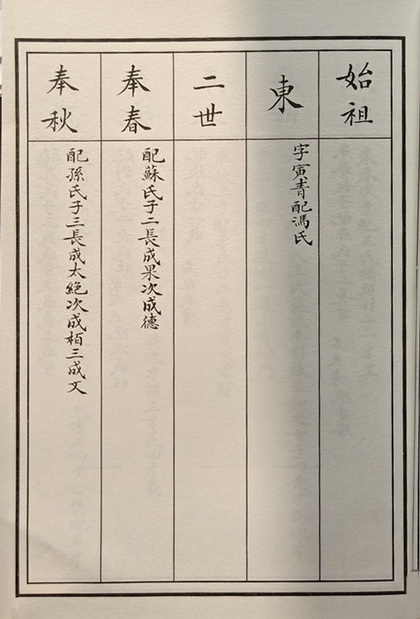 始祖
東
字寅青配馮氏
二世
奉春
配蘇氏子二長成果次成德
奉秋
配孫氏子三長成太絕次成栢三成文